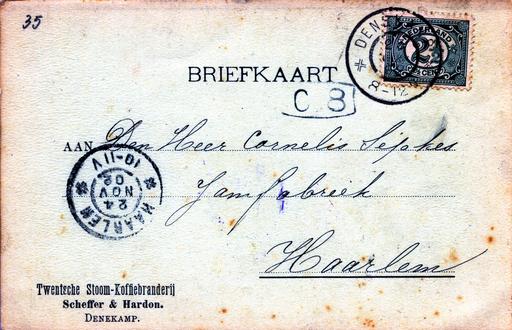 35
DENE
8-12
NEDERLAND
2½
CENT
BRIEFKAART
C 8
AAN Den Heer Cornelis Sipkes
Jamfabriek
Haarlem
10-11V
24
NOV
02
HAARLEM
Twentsche Stoom-Koffiebranderij
Scheffer & Hardon.
DENEKAMP.